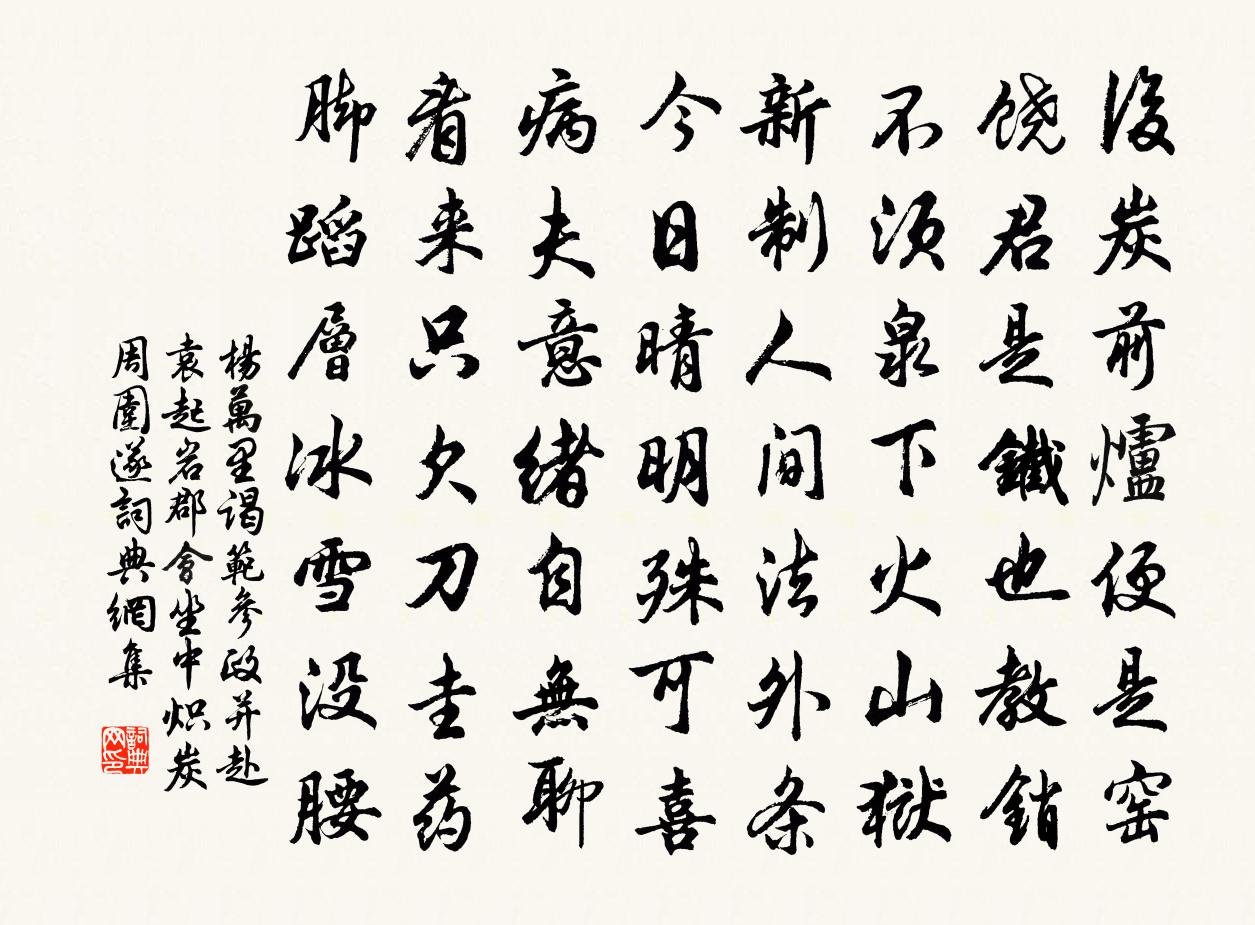 後炭前爐便是窑
饶君是鐵也教銷
不须泉下火山獄
新制人间法外条
今日晴明殊可喜
病夫意緒自無聊
看来只欠刀圭药
脚蹈層冰雪没腰
楊萬里谒範參政并赴
袁起岩郡會坐中炽炭
周圍遂詞典網集
詞典网印